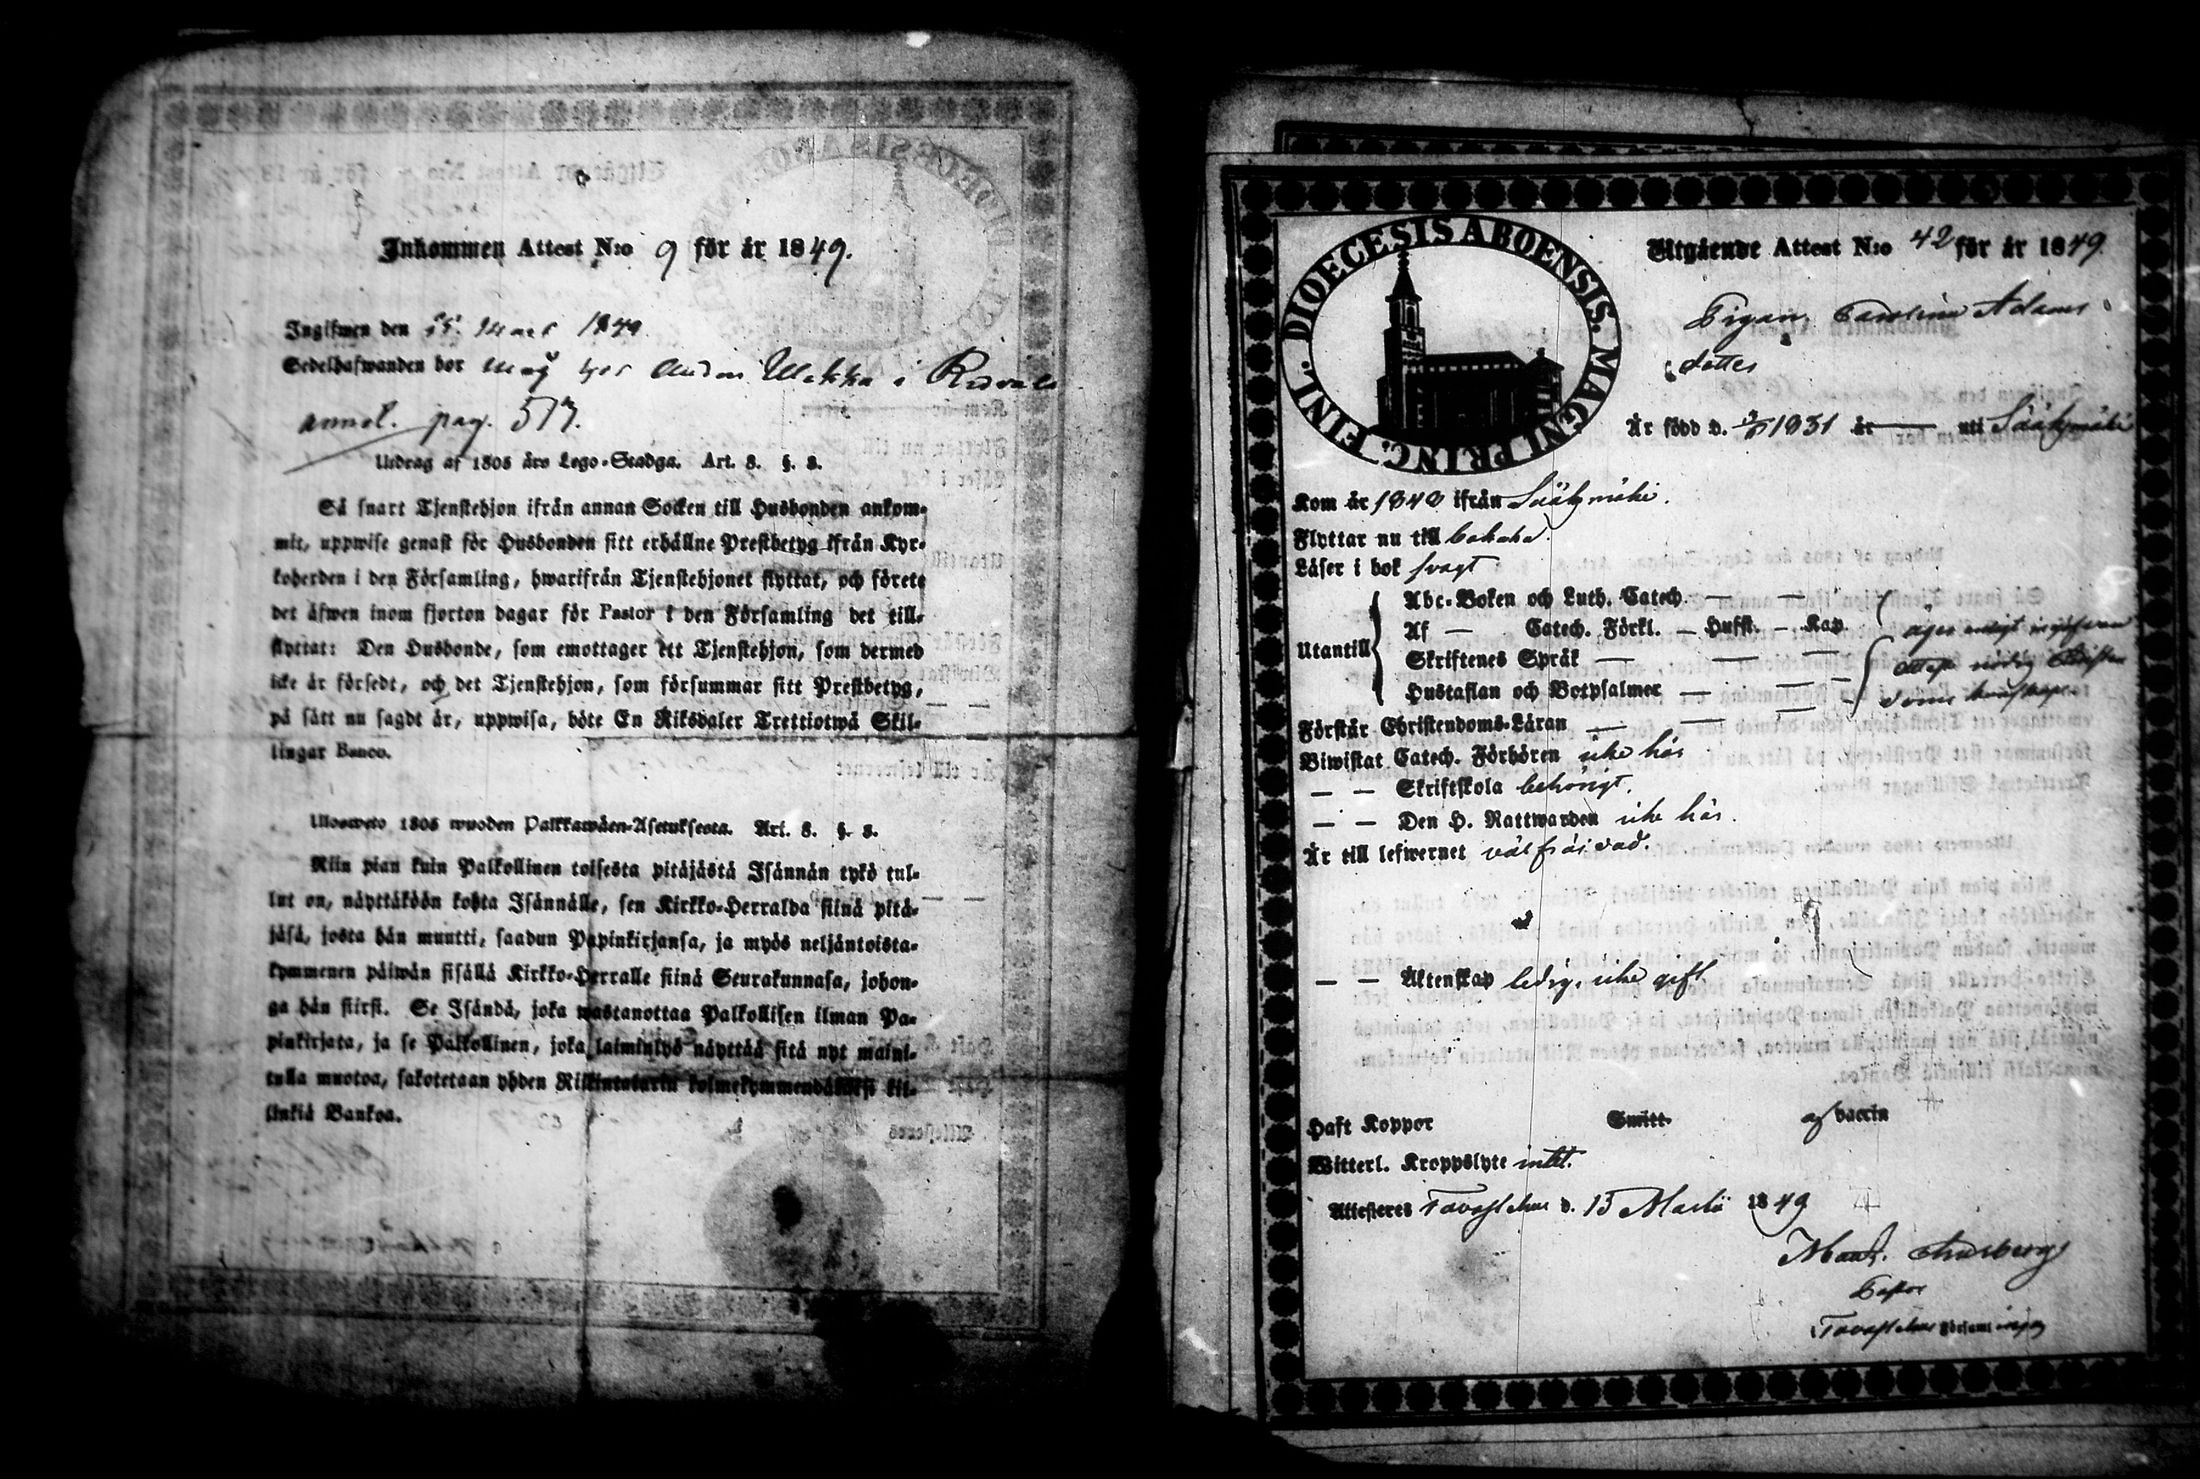 Inkommen Attest N:o 9 för år 1849.
Ingifwen den Mars 1849
Sedelhafwanden bor hos i
annot. pag. 517.
Utdrag af 1805 års Lego-Stadga. Art. 8. §. 3.
Så snart Tjenstehjon ifrån annan Socken till Husbonden ankom-
mit, uppwise genast för Husbonden sitt erhållne Prestbetyg ifrån Kyr-
koherden i den Församling, hwarifrån Tjenstehjonet flyttat, och förete
det äfwen inom fjorton dagar för Pastor i den Församling det till-
flyttat: Den Husbonde, som emottager ett Tjenstehjon, som dermed
icke är försedt, och det Tjenstehjon, som försummar sitt Prestbetyg,
på sätt nu sagdt är, uppwisa, böte En Riksdaler Trettiotwå Skil-
lingar Banco.
Ulosweto 1805 wuoden Palkkawäen-Asetuksesta. Art. 8. §. 3.
Niin pian kuin Palkollinen toisesta pitäjästä Isännän tykö tul-
lut on, näyttäköön kohta Isännälle, sen Kirkko-Herralda siinä pitä-
jäsä, josta hän muutti, saadun Papinkirjansa, ja myös neljäntoista-
kymmenen päiwän sisällä Kirkko-Herralle siinä Seurakunnasa, johon-
ga hän siirsi. Se Isändä, joka wastanottaa Palkollisen ilman Pa-
pinkirjata, ja se Palkollinen, joka laiminlyö näyttää sitä nyt maini-
tulla muotoa, sakotetaan yhden Riikintalarin kolmekymmendäkaksi kil-
linkiä Bankoa.
DIOECESIS ABOENSIS. MAGNI PRINC. FINL.
Utgående Attest N:o 42 för år 1849.
Pigan Carolina Adams
dotter
Är född d. 1831 år — uti Sääksmäki
Kom år 1848 ifrån Sääksmäki.
Flyttar nu till
Läser i bok svagt
Utantill
Abc-Boken och Luth. Catech. — —
Af — Catech. Förkl. — Hufst. — Kap.
Skriftenes Språk — — —
Hustaflan och Botpsalmer — — —
äger enligt
attest nödig Christen
doms kunskaper
Förstår Christendoms-Läran — — — —
Biwistat Catech. Förhören icke här
— — Skriftskola behörigt.
— — Den H. Nattwarden icke här.
Är till lefwernet välfräjdad.
— — Äktenskap ledig, icke gift.
Haft Koppor Smitt- af vaccin
Witterl. Kroppslyte intet.
Attesteras Tavastehus d. 15 Martii 1849
Pastor
Tavastehus församl